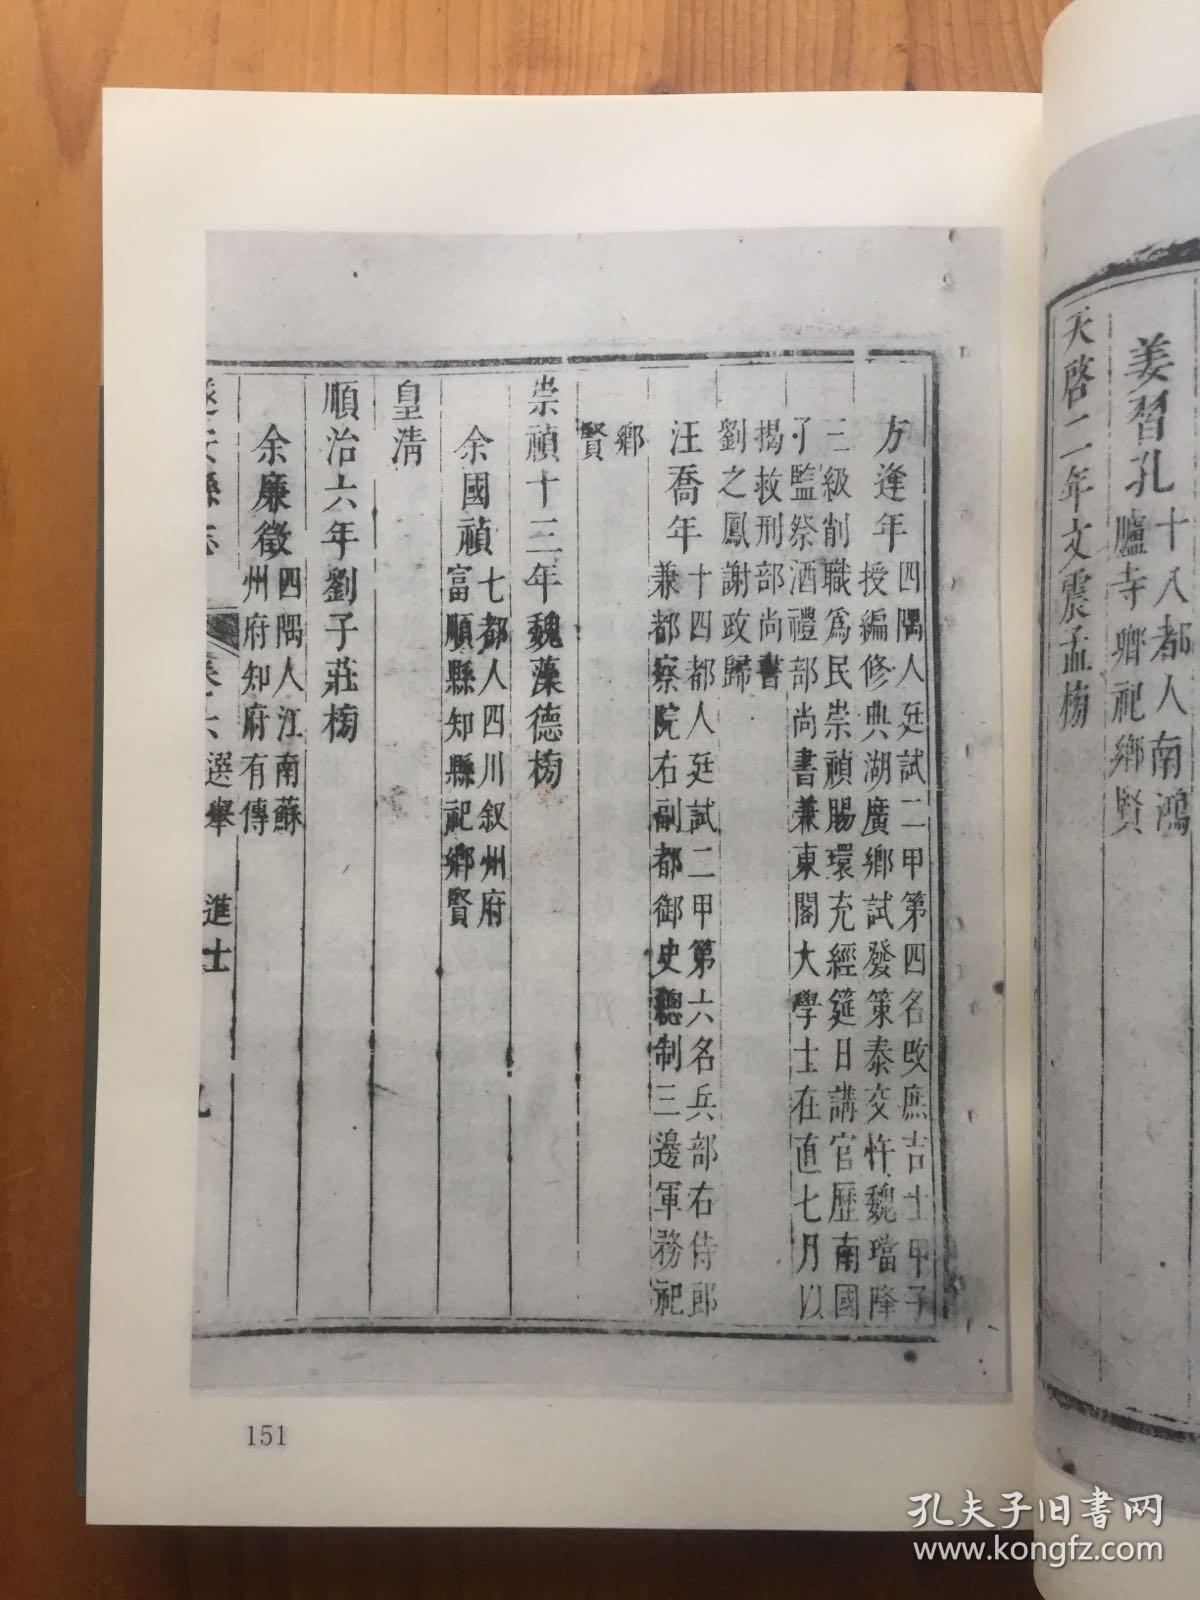 姜習孔
十八都人南鴻
臚寺卿祀鄉賢
天啓二年文震孟榜
方逢年
四隅人廷試二甲第四名改庶吉士甲子
授編修典湖廣鄉試發策泰交忤魏璫降
三級削職爲民崇禎賜環充經筵日講官歷南國
子監祭酒禮部尚書兼東閣大學士在直七月以
揭救刑部尚書
劉之鳳謝政歸
汪喬年
十四都人廷試二甲第六名兵部右侍郎
兼都察院右副都御史總制三邊軍務祀
鄉
賢
崇禎十三年魏藻德榜
余國禎
七都人四川叙州府
富順縣知縣祀鄉賢
皇清
順治六年劉子莊榜
余廉徵
四隅人江南蘇
州府知府有傳
遂安縣志 卷之六選舉 進士 九
151
孔夫子旧书网
www.kongfz.com